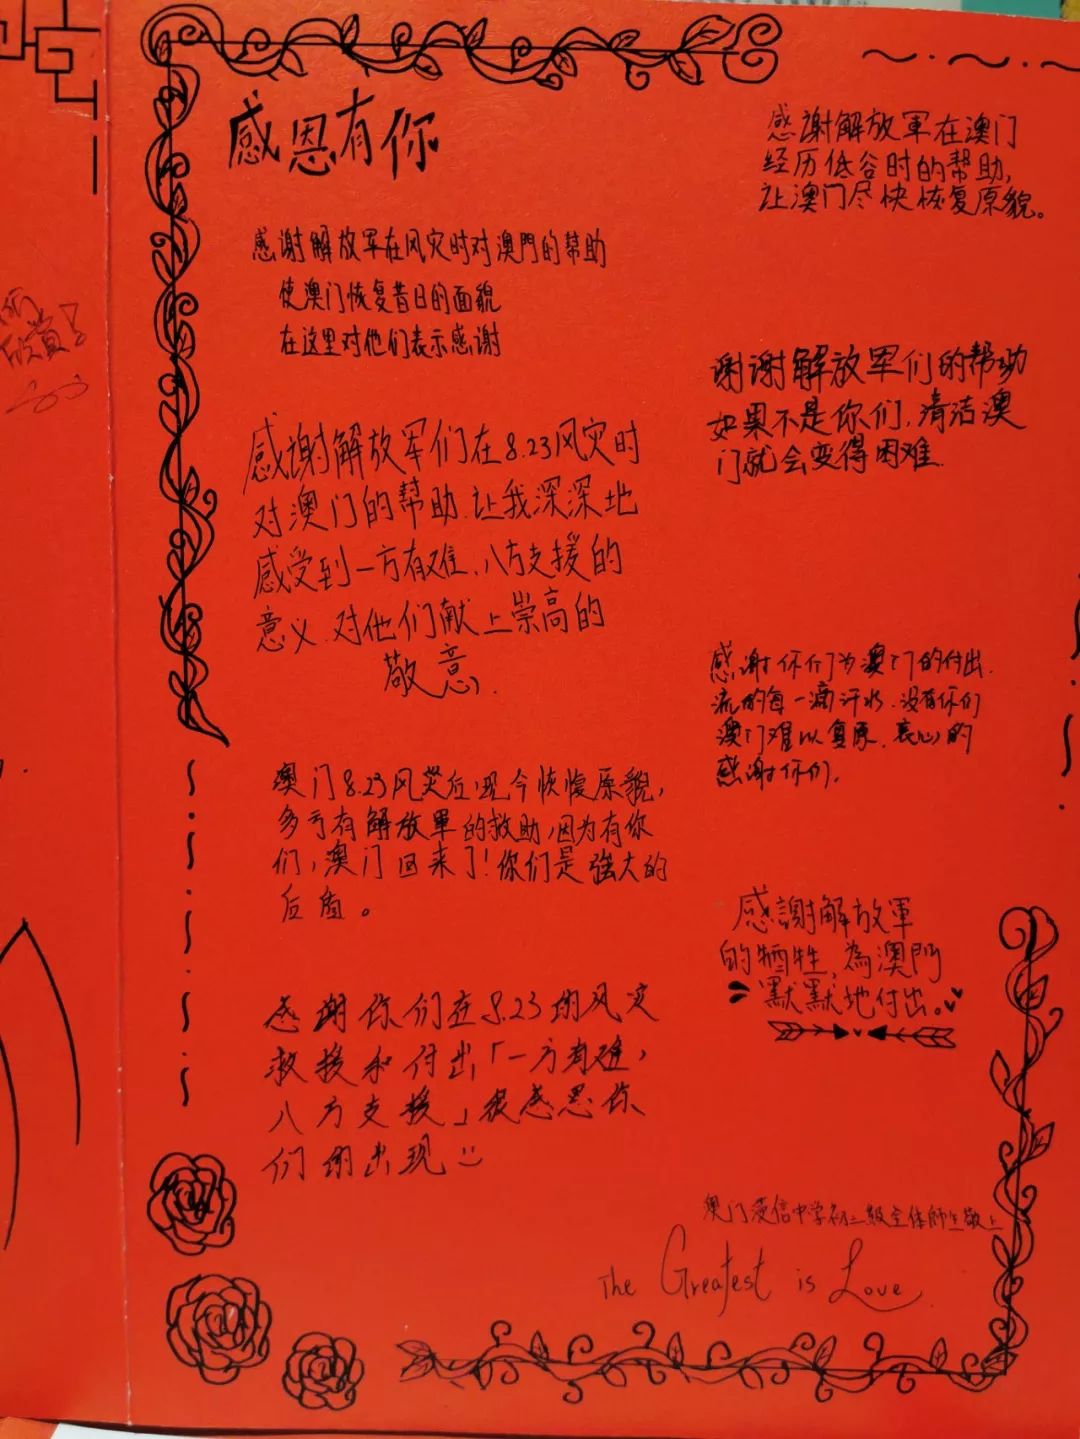 感恩有你
感谢解放军在风灾时对澳門的帮助
使澳门恢复昔日的面貌
在这里对他们表示感谢
感谢解放军们在8.23风灾时
对澳门的帮助.让我深深地
感受到一方有难、八方支援的
意义.对他们献上崇高的
敬意.
澳门8.23风灾后,现今恢復原貌,
多亏有解放軍的救助,因为有你
们,澳门回来了!你们是強大的
后盾。
感謝你们在8.23的风灾
救援和付出「一方有难,
八方支援」很感恩你
们的出现
感謝解放軍在澳门
经历低谷时的帮助,
让澳门尽快恢复原貌。
谢谢解放军们的帮助
如果不是你们,清洁澳
门就会变得困难.
感谢你们为澳门的付出.
流的每一滴汗水.没有你们
澳门难以复原.衷心的
感谢你们.
感謝解放軍
的犧牲,為澳門
默默地付出。
澳门 信中学初二級全体師生敬上
The Greatest is Love
欣賞!